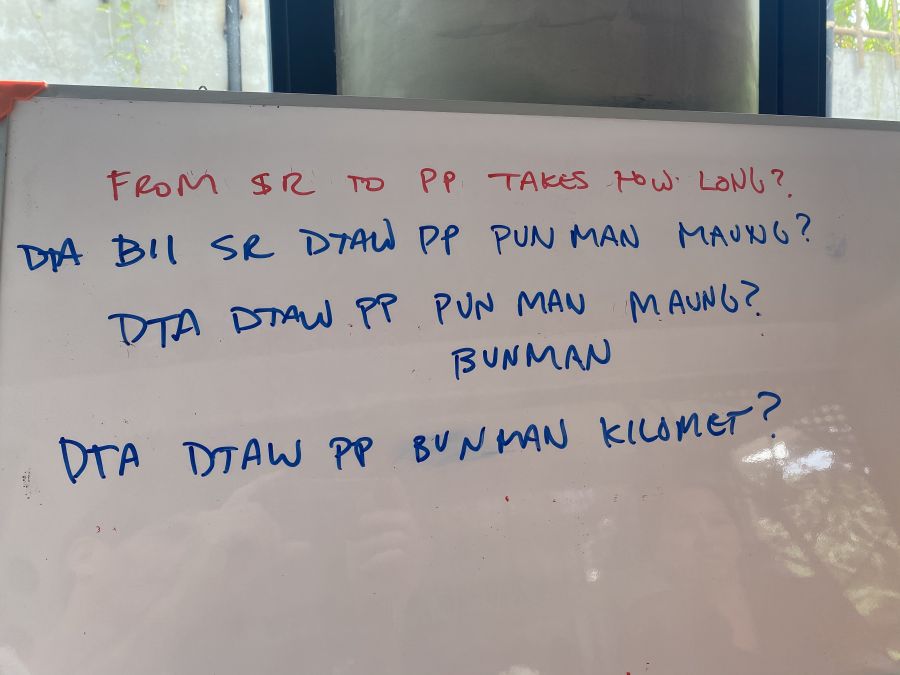 FROM SR TO PP TAKES HOW LONG?
DTA BII SR DTAW PP PUN MAN MAUNG?
DTA DTAW PP PUN MAN MAUNG?
BUNMAN
DTA DTAW PP BUNMAN KILOMET?